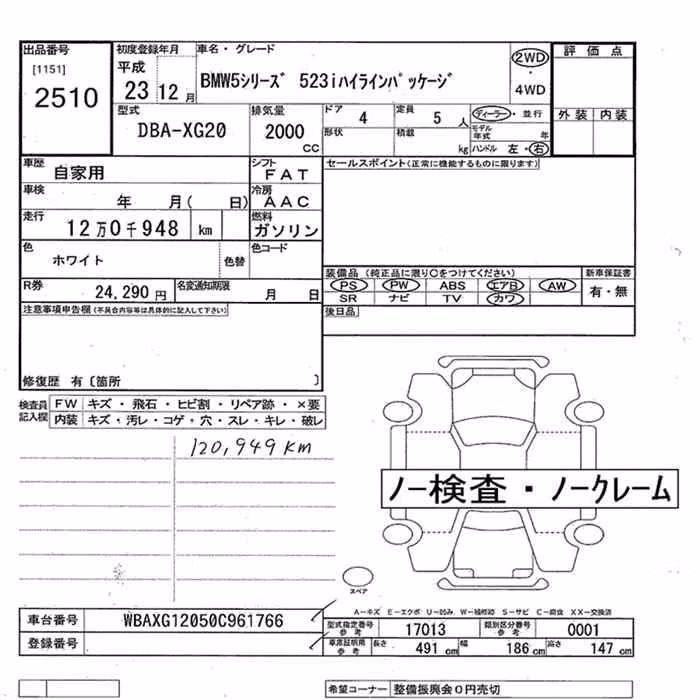 出品番号
[1151]
2510
初度登録年月
平成
23 12 月
車名・グレード
BMW5シリーズ 523iハイラインパッケージ
2WD
・
4WD
評価点
外装 内装
型式
DBA-XG20
排気量
2000
CC
ドア 4
定員 5 人
形状
積載 kg
ディーラー・並行
モデル年式 年
ハンドル 左・右
車歴
自家用
シフト
FAT
車検
年 月( 日)
冷房
AAC
走行
12万0千948 km
燃料
ガソリン
色
ホワイト
色替
色コード
R券
24,290 円
名変通知期限
月 日
セールスポイント(正常に機能するものに限ります)
装備品(純正品に限り〇をつけてください)
新車保証書
PS PW ABS エアB AW
有・無
SR ナビ TV カワ
後日品
注意事項申告欄(不具合内容等は具体的に記入して下さい)
修復歴 有〔箇所 〕
検査員記入欄
FW キズ・飛石・ヒビ割・リペア跡・×要
内装 キズ・汚レ・コゲ・穴・スレ・キレ・破レ
120,949 KM
ノー検査・ノークレーム
スペア
A-キズ E-エクボ U-凹み W-補修跡 S-サビ C-腐食 XX-交換済
車台番号 WBAXG12050C961766
登録番号
型式指定番号参考 17013
類別区分番号参考 0001
車庫証明用参考 長さ 491 cm 幅 186 cm 高さ 147 cm
希望コーナー 整備振興会0円売切